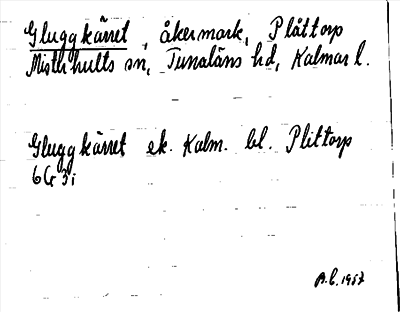 Gluggkärret, åkermark, Plåttorp
Misterhults sn, Tunaläns hd, Kalmar l.
Gluggkärret ek. Kalm. bl. Plittorp
6G 3i
A.C. 1957